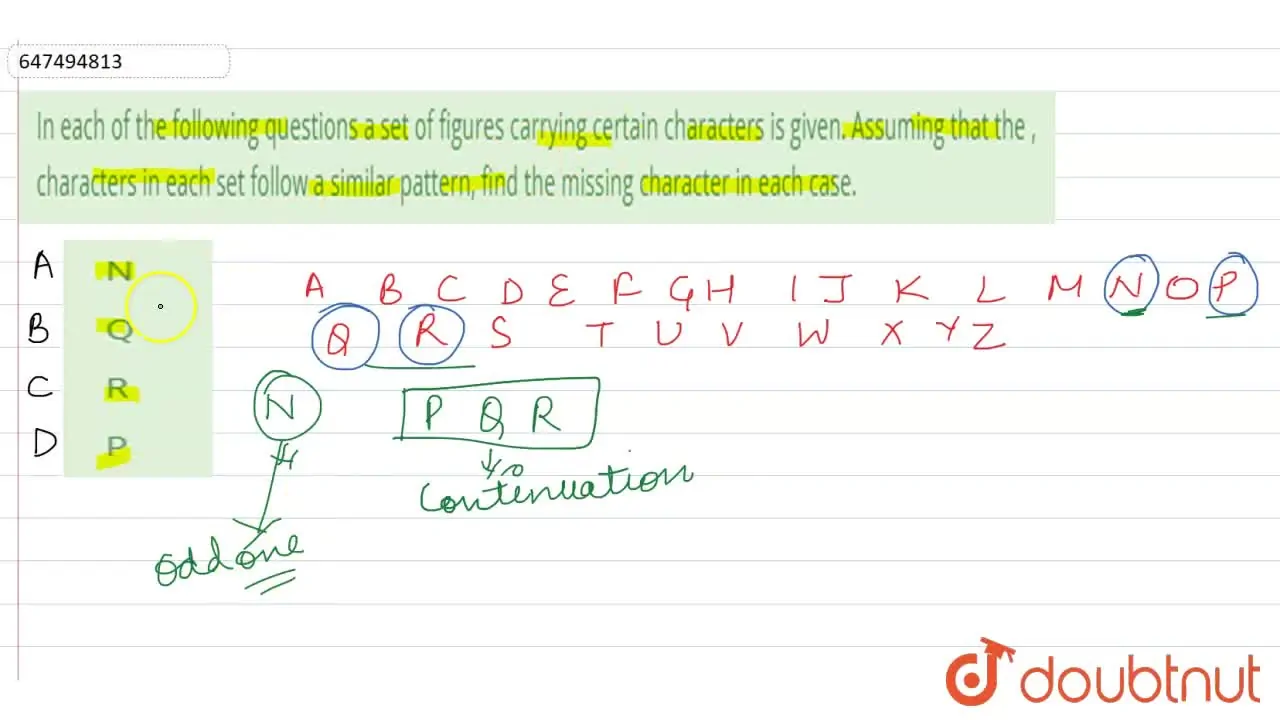 647494813
In each of the following questions a set of figures carrying certain characters is given. Assuming that the ,
characters in each set follow a similar pattern, find the missing character in each case.
A N
A B C D E F G H I J K L M N O P
B Q
Q R S T U V W X Y Z
C R
N P Q R
D P
Contenuation
Odd one
doubtnut